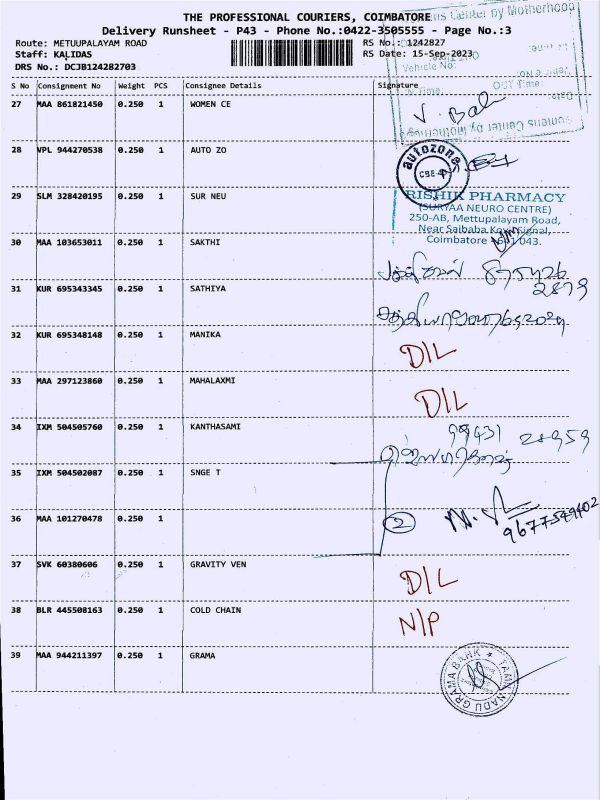 THE PROFESSIONAL COURIERS, COIMBATORE
Delivery Runsheet - P43 - Phone No.:0422-3505555 - Page No.:3
Route: METUUPALAYAM ROAD
RS No.: 1242827
Staff: KALIDAS
RS Date: 15-Sep-2023
DRS No.: DCJB124282703
Vehicle No:
Womens Center by Motherhood
OUT Time:
Date:
S No Consignment No Weight PCS Consignee Details Signature
27 MAA 861821450 0.250 1 WOMEN CE V. Bal
Womens Center by Motherhood
28 VPL 944270538 0.250 1 AUTO ZO autozone CBE-4
29 SLM 328420195 0.250 1 SUR NEU RISHIK PHARMACY
(SURYAA NEURO CENTRE)
250-AB, Mettupalayam Road,
Near Saibaba Kovil Signal,
30 MAA 103653011 0.250 1 SAKTHI Coimbatore - 641 043.
31 KUR 695343345 0.250 1 SATHIYA
32 KUR 695348148 0.250 1 MANIKA D/L
33 MAA 297123860 0.250 1 MAHALAXMI D/L
34 IXM 504505760 0.250 1 KANTHASAMI 99431 28959
35 IXM 504502087 0.250 1 SNGE T
36 MAA 101270478 0.250 1 2 9677549402
37 SVK 60380606 0.250 1 GRAVITY VEN D/L
38 BLR 445508163 0.250 1 COLD CHAIN N/P
39 MAA 944211397 0.250 1 GRAMA TAMIL NADU GRAMA BANK